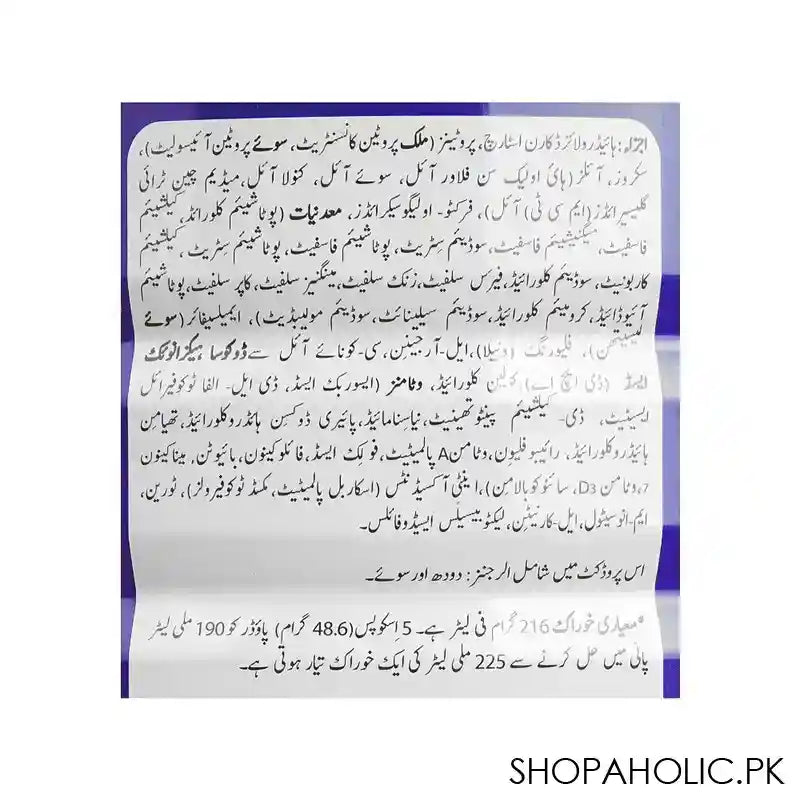 اجزاء: ہائیڈرولائزڈ کارن اسٹارچ، پروٹینز (ملک پروٹین کانسنٹریٹ، سوئے پروٹین آئیسولیٹ)،
سکروز، آئلز (ہائی اولیک سن فلاور آئل، سوئے آئل، کنولا آئل، میڈیم چین ٹرائی
گلیسرائڈز (ایم سی ٹی) آئل)، فرکٹو- اولیگوسیکرائڈز، معدنیات (پوٹاشیئم کلورائڈ، کیلشیئم
فاسفیٹ، میگنیشیئم فاسفیٹ، سوڈیئم سٹریٹ، پوٹاشیئم فاسفیٹ، پوٹاشیئم سٹریٹ، کیلشیئم
کاربونیٹ، سوڈیئم کلورائیڈ، فیرس سلفیٹ، زنک سلفیٹ، مینگنیز سلفیٹ، کاپر سلفیٹ، پوٹاشیئم
آئیوڈائیڈ، کرومیئم کلورائیڈ، سوڈیئم سیلینائٹ، سوڈیئم مولیبڈیٹ)، ایملسیفائر (سوئے
لیسیتھن)، فلیورنگ (ونیلا)، ایل-آرجینن، سی-کونائے آئل سے ڈوکوسا ہیگزانوئک
ایسڈ (ڈی ایچ اے) کولین کلورائیڈ، وٹامنز (ایسوربک ایسڈ، ڈی ایل- الفا ٹوکوفیرائل
ایسٹیٹ، ڈی- کیلشیئم پینٹوتھینیٹ، نیاسنامائیڈ، پائیری ڈوکسن ہائڈروکلورائیڈ، تھیامن
ہائیڈروکلورائیڈ، رائیبوفلیون، وٹامن A پالمیٹیٹ، فولک ایسڈ، فائلوکینون، بائیوٹن، میناکینون
7، وٹامن D3، سائنوکوبالامن)، اینٹی آکسیڈنٹس (اسکاربل پالمیٹیٹ، مکسڈ ٹوکوفیرولز)، ٹورین،
ایم-انوسیٹول، ایل-کارنیٹن، لیکٹوبیسیلس ایسڈوفائلس۔
اس پروڈکٹ میں شامل الرجنز: دودھ اور سوئے۔
*معیاری خوراک 216 گرام فی لیٹر ہے۔ 5 اسکوپس (48.6 گرام) پاؤڈر کو 190 ملی لیٹر
پانی میں حل کرنے سے 225 ملی لیٹر کی ایک خوراک تیار ہوتی ہے۔
SHOPAHOLIC.PK